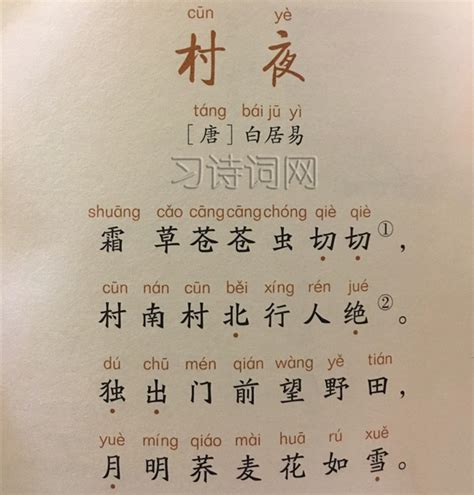 cūn yè
村夜
táng bái jū yì
[唐]白居易
习诗词网
shuāng cǎo cāng cāng chóng qiè qiè
霜草苍苍虫切切①，
cūn nán cūn běi xíng rén jué
村南村北行人绝②。
dú chū mén qián wàng yě tián
独出门前望野田，
yuè míng qiáo mài huā rú xuě
月明荞麦花如雪。